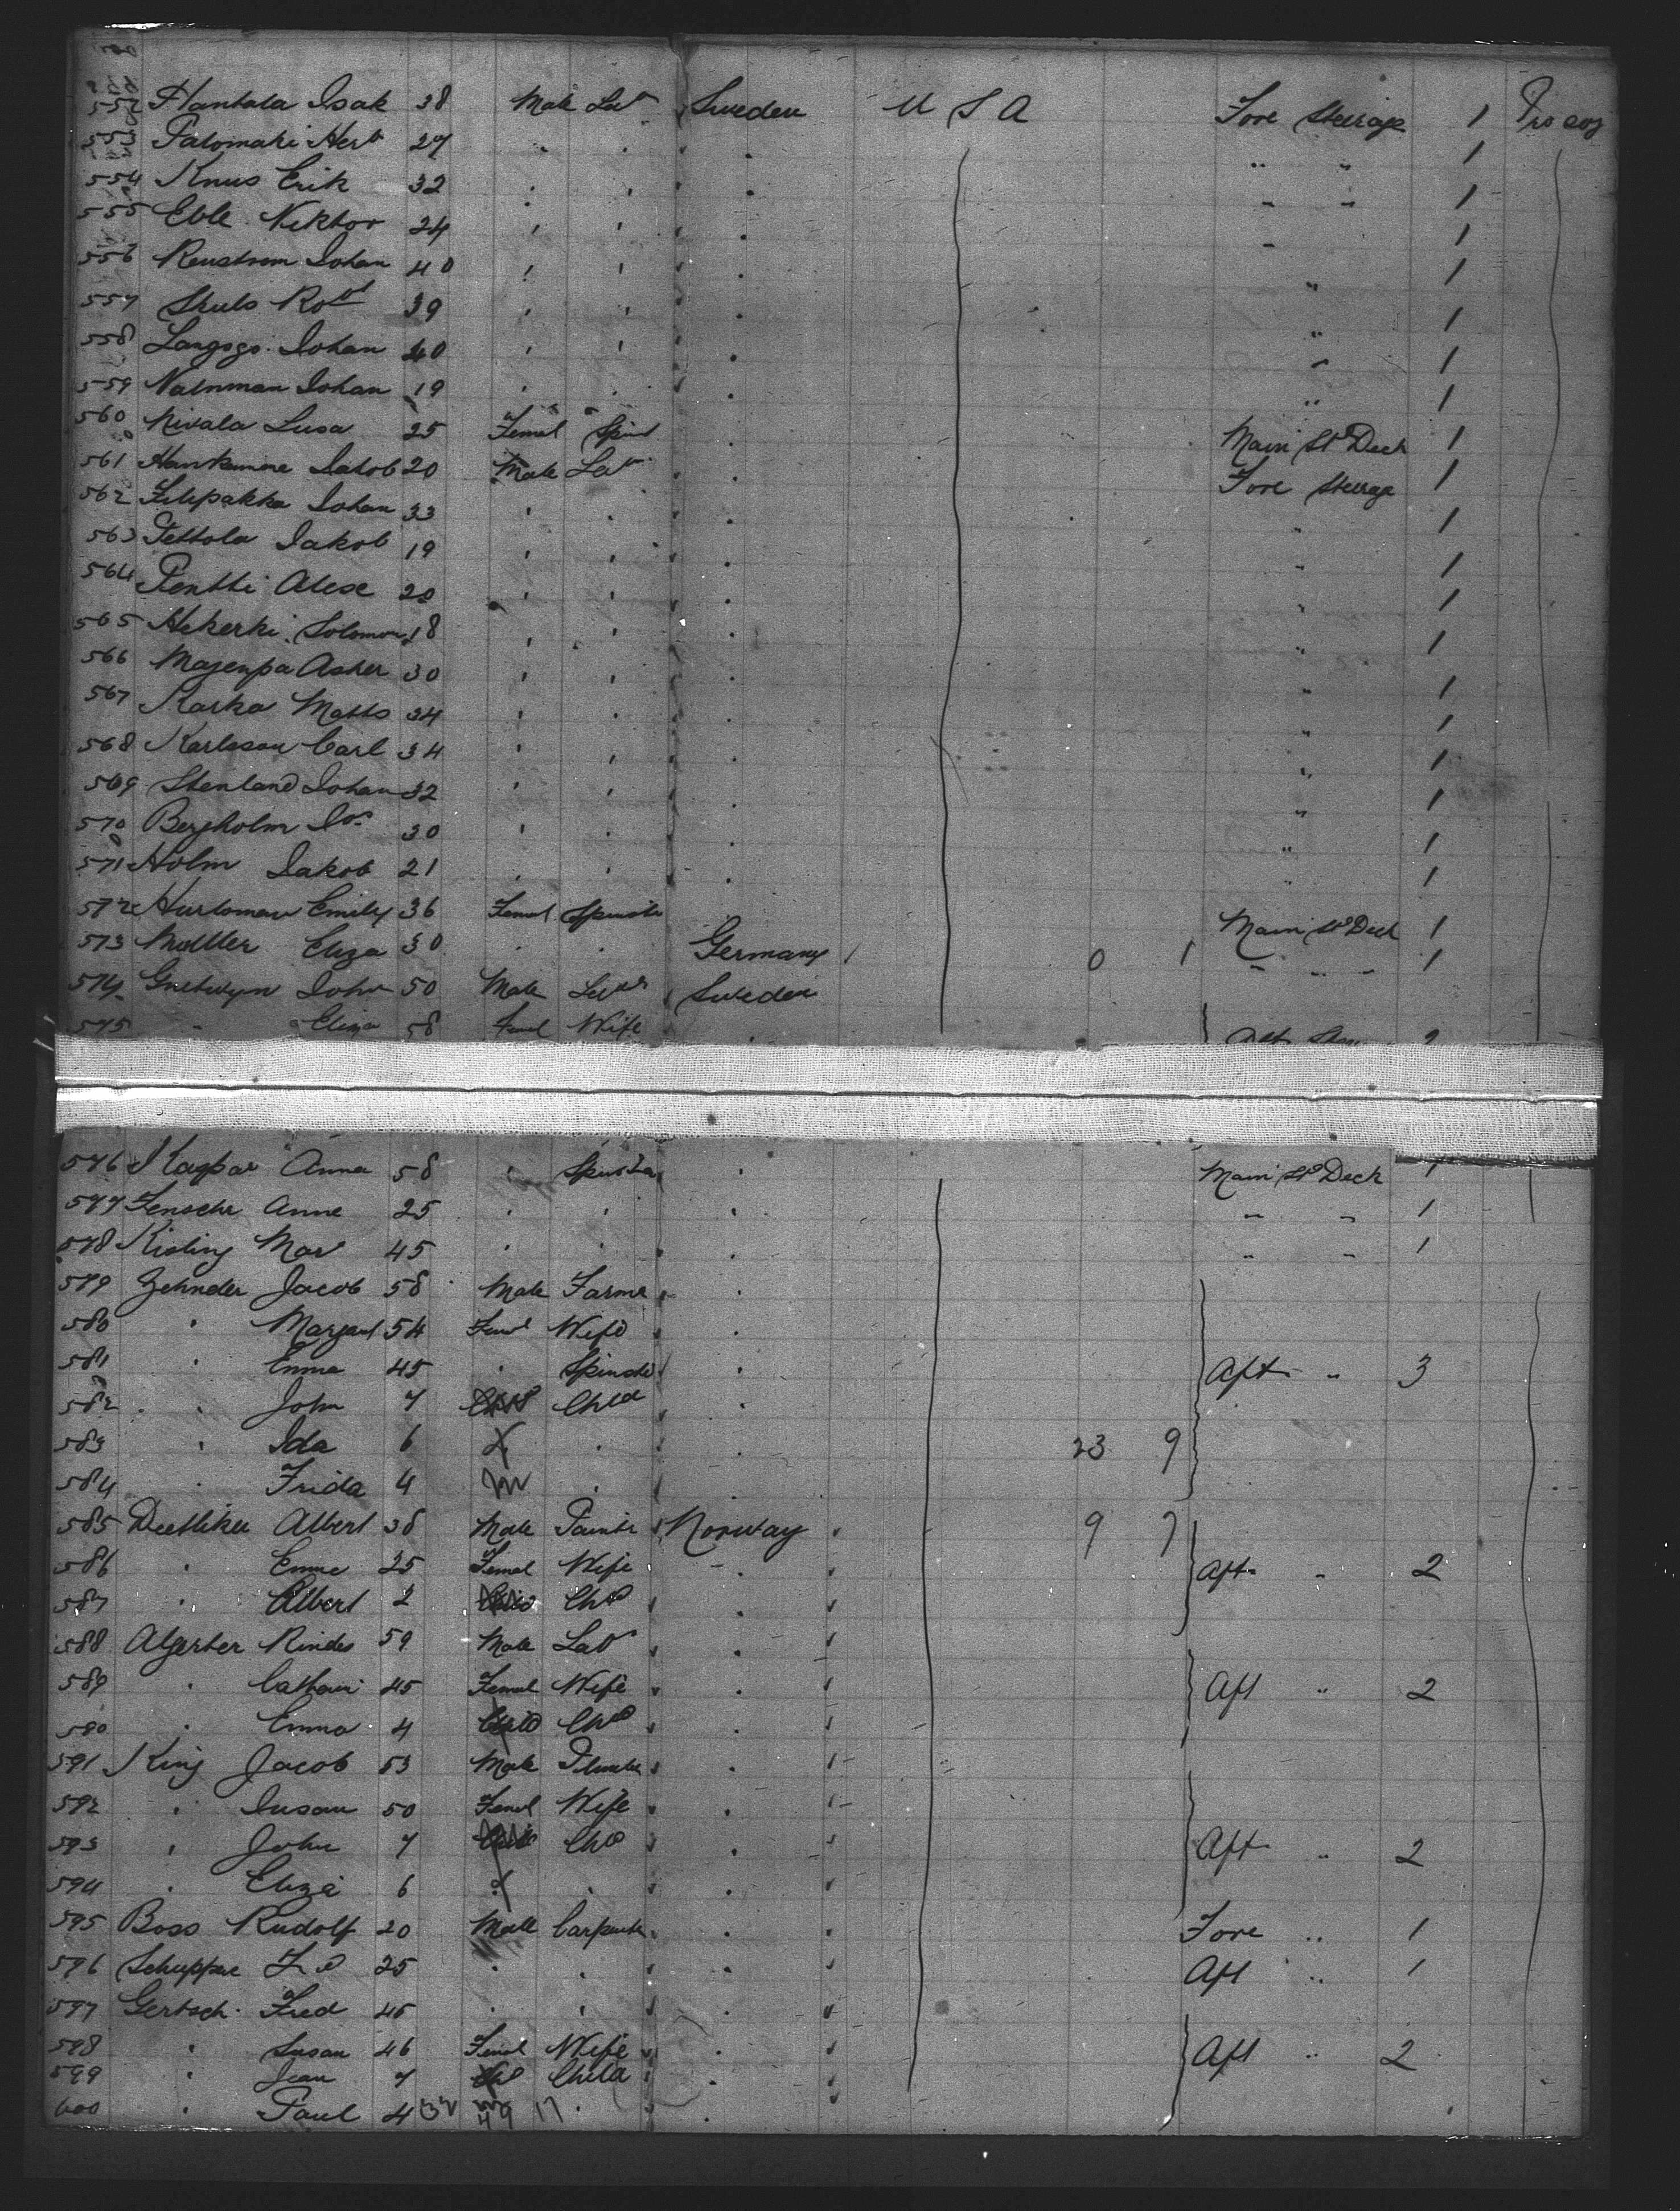 552 Hantala Isak 38 Male Labr Sweden U S A Fore Steerage 1
553 Palomaki Hert 27 " " " " " 1
554 Knus Erik 32 " " " " " 1
555 Eble Viktor 24 " " " " 1
556 Renstrom Johan 40 " " " " 1
557 Skuls Robt 39 " " " " 1
558 Johan 40 " " " " 1
559 Johan 19 " " " " 1
560 Nivala Lusa 25 Femal Spins " Main St Deck 1
561 Jakob 20 Male Labr " Fore Steerage 1
562 Filipakka Johan 33 " " " " 1
563 Pettola Jakob 19 " " " " 1
564 Pentti Alex 20 " " " " 1
565 Solomon 18 " " " " 1
566 Asher 30 " " " " 1
567 Karka Matts 34 " " " " 1
568 Karlsson Carl 34 " " " " 1
569 Stenland Johan 32 " " " " 1
570 Bergholm Jos 30 " " " " 1
571 Holm Jakob 21 " " " " 1
572 Emily 36 Femal Spinste Main St Deck 1
573 Eliza 30 " " Germany 0 1 " " " 1
574 John 50 Male Sweden
575 " Eliza 58 Femal Wife "
576 Kaspar Anna 58 " Spinster " Main St Deck 1
577 Anne 25 " " " " " 1
578 Kisling Mar 45 " " " " " 1
579 Zehnder Jacob 58 Male Farme "
580 " Margaret 54 Femal Wife "
581 " Emma 45 " Spinste " Aft " 3
582 " John 7 Child "
583 " Ida 6 " " 23 9
584 " Frida 4 " "
585 Albert 38 Male Painte Norway 9 7
586 " Emme 25 Femal Wife " Aft " 2
587 " Albert 2 Chd "
588 Rindes 59 Male Labr "
589 " 45 Femal Wife " Aft " 2
590 " Emma 4 Chd "
591 King Jacob 53 Male "
592 " Susan 50 Femal Wife "
593 " John 7 Chd " Aft " 2
594 " Eliza 6 " "
595 Boss Rudolf 20 Male Carpente " Fore " 1
596 25 " " " Aft " 1
597 Gertsch Fred 45 " " "
598 " Susan 46 Femal Wife " Aft " 2
599 " Jean 7 Child "
600 " Paul 4 " "